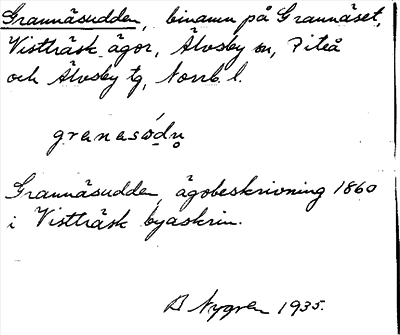 Grannäsudden, binamn på Grannäset,
Vistträsk ägor, Älvsby sn, Piteå
och Älvsby tg, Norrb. l.
granasödn
Grannäsudden, ägobeskrivning 1860
i Vistträsk byaskrin.
B Nygren 1935.